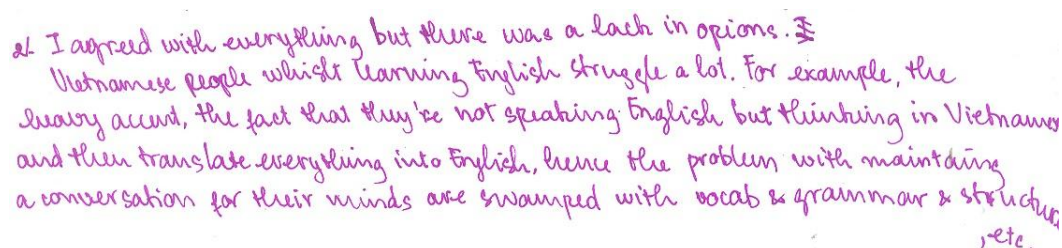 2/. I agreed with everything but there was a lack in opions.
Vietnamese people whislt learning English struggle a lot. For example, the
heavy accent, the fact that they're not speaking English but thinking in Vietnames
and then translate everything into English, hence the problem with maintaing
a conversation for their minds are swamped with vocab & grammar & structure
, etc.